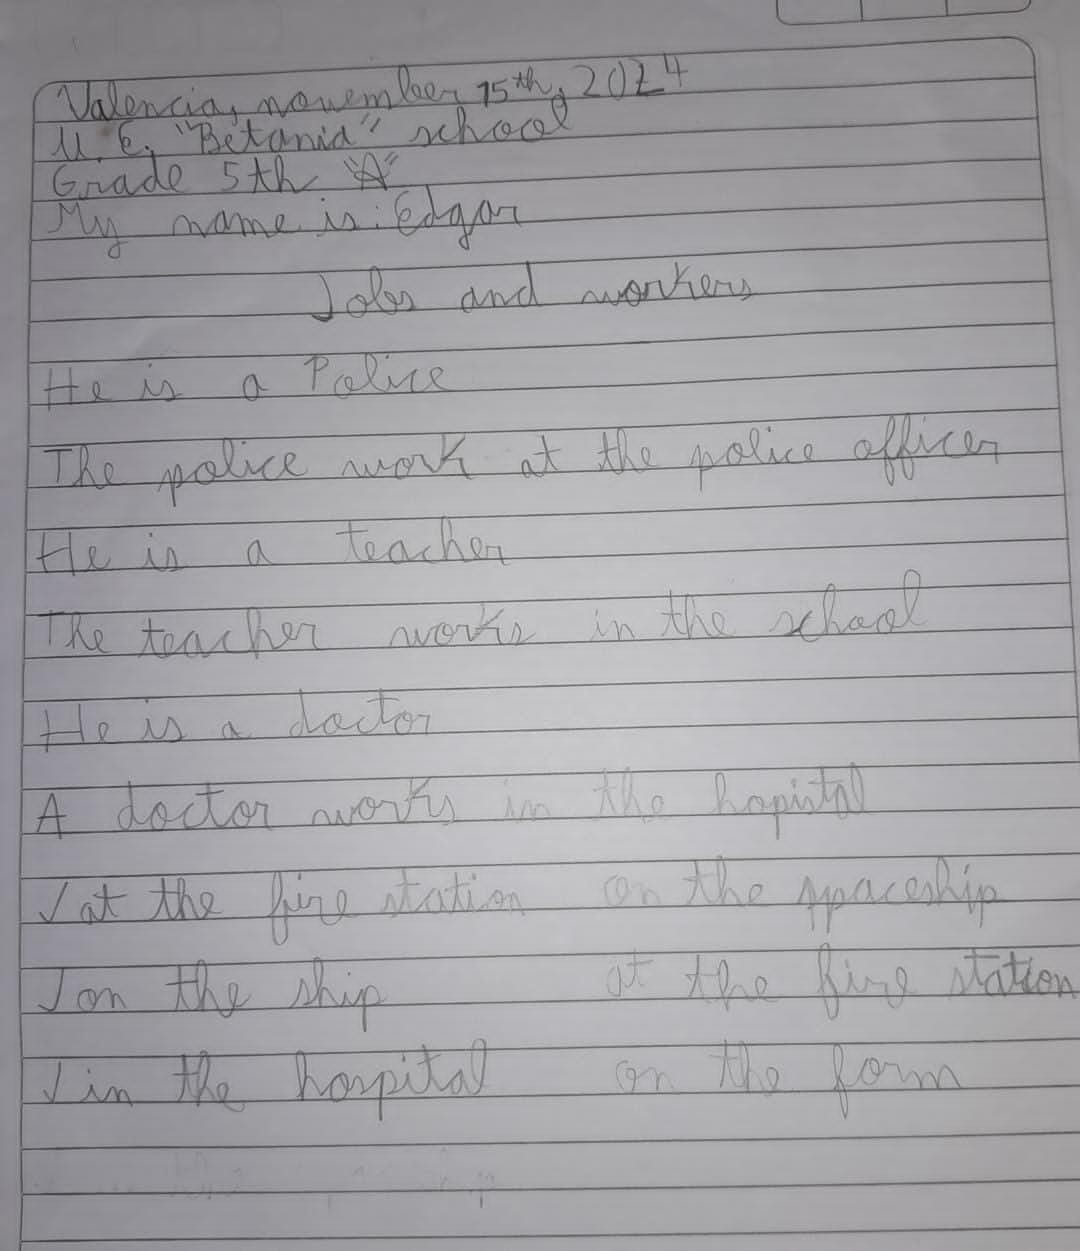 Valencia, november 15th, 2024
U. E. "Betania" school
Grade 5th "A"
My name is: Edgar
Jobs and workers
He is a Police
The police work at the police officer
He is a teacher
The teacher works in the school
He is a doctor
A doctor works in the hopistal
√ at the fire station on the spaceship
√ on the ship at the fire station
√ in the hospital on the form